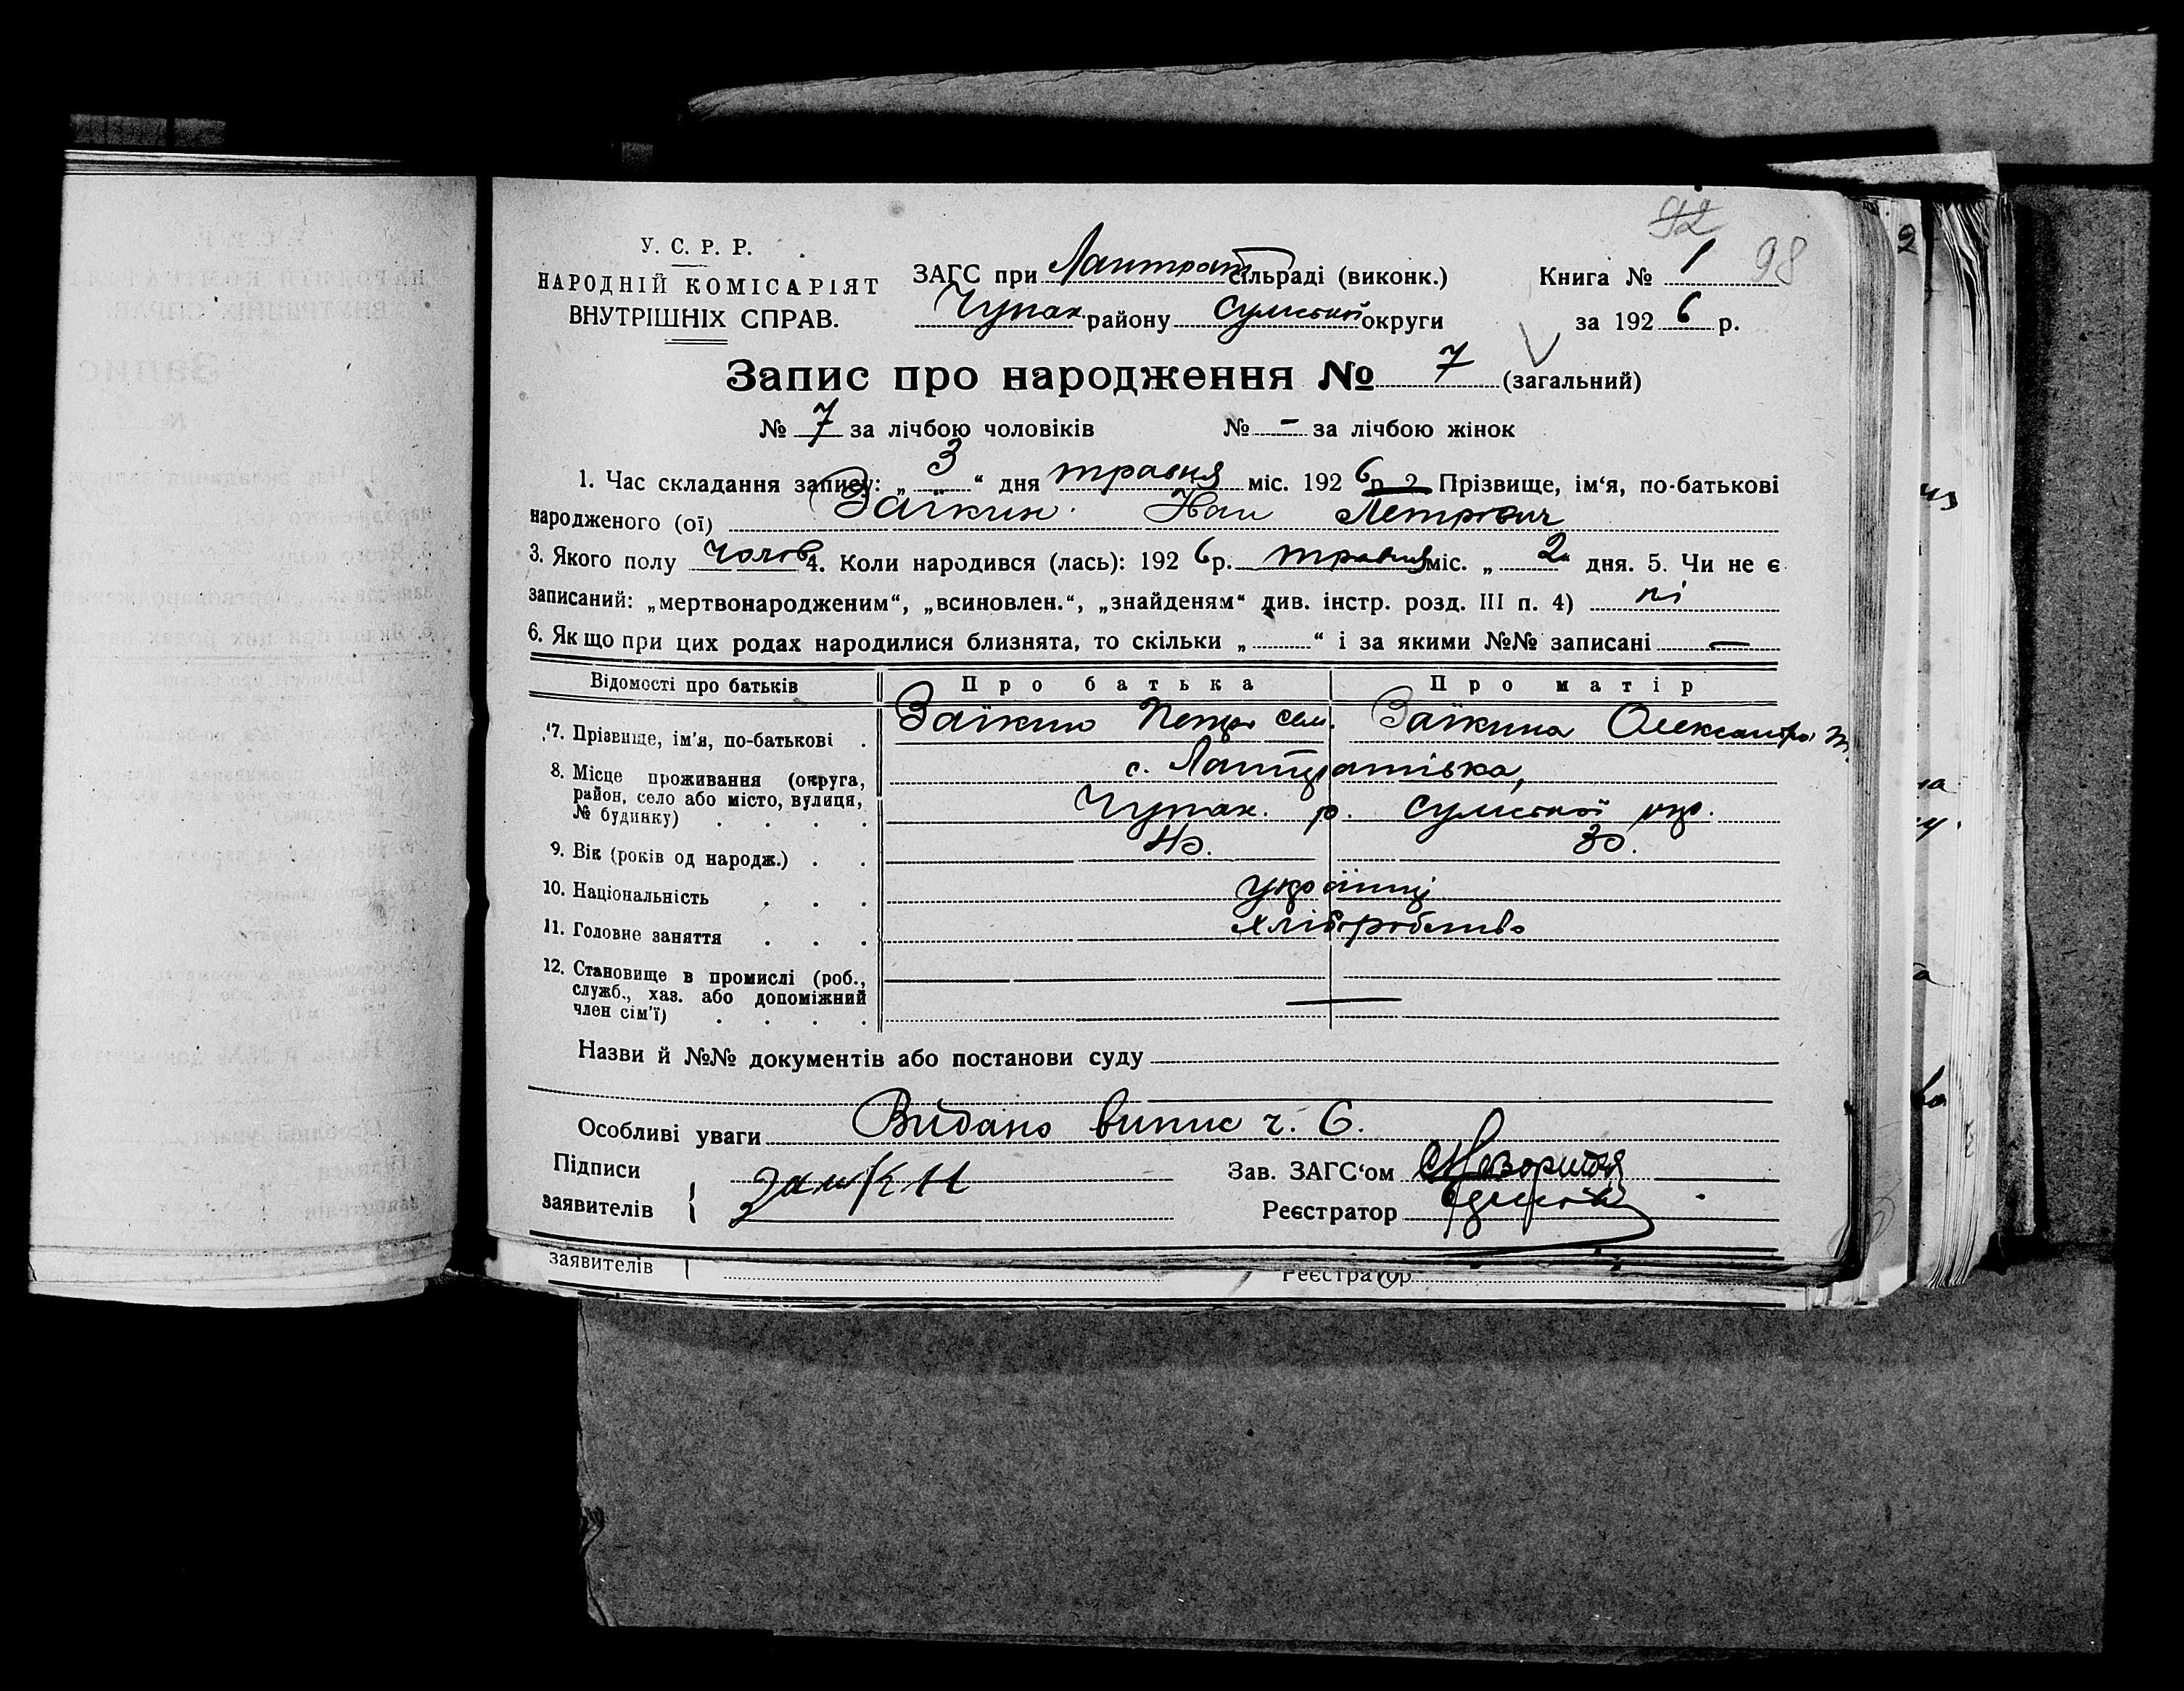 92
98
У. С. Р. Р.
НАРОДНІЙ КОМІСАРІЯТ
ВНУТРІШНІХ СПРАВ.
ЗАГС при Лантрат сільраді (виконк.)
Чупах. району Сумської округи
Книга № 1
за 192 6 р.
Запис про народження № 7 (загальний)
№ 7 за лічбою чоловіків № - за лічбою жінок
1. Час складання запису: „ 3 “ дня травня міс. 192 6 р. 2. Прізвище, ім‘я, по-батькові
народженого (ої) Заїкин Иван Петрович
3. Якого полу чолов 4. Коли народився (лась): 192 6 р. травня міс. „ 2 “ дня. 5. Чи не є
записаний: „мертвонародженим“, „всиновлен.“, „знайденям“ див. інстр. розд. III п. 4) ні
6. Якщо при цих родах народилися близнята, то скільки „ “ і за якими №№ записані —
Відомості про батьків Про батька Про матір
7. Прізвище, ім’я, по-батькові . Заїкин Петро сем. Заїкина Олександра
8. Місце проживання (округа, с. Лантратівка,
район, село або місто, вулиця,
№ будинку) . . . . Чупах. р. Сумської окр.
9. Вік (років од народж.) . . 40. 30.
10. Національність . . . українці
11. Головне заняття . . . хліборобство
12. Становище в промислі (роб.,
служб., хаз. або допоміжний
член сім’ї) . . . . —
Назви й №№ документів або постанови суду
Особливі уваги Видано випис ч. 6.
Підписи
заявителів Заикин
Зав. ЗАГС‘ом
Реєстратор
заявителів Реєстратор